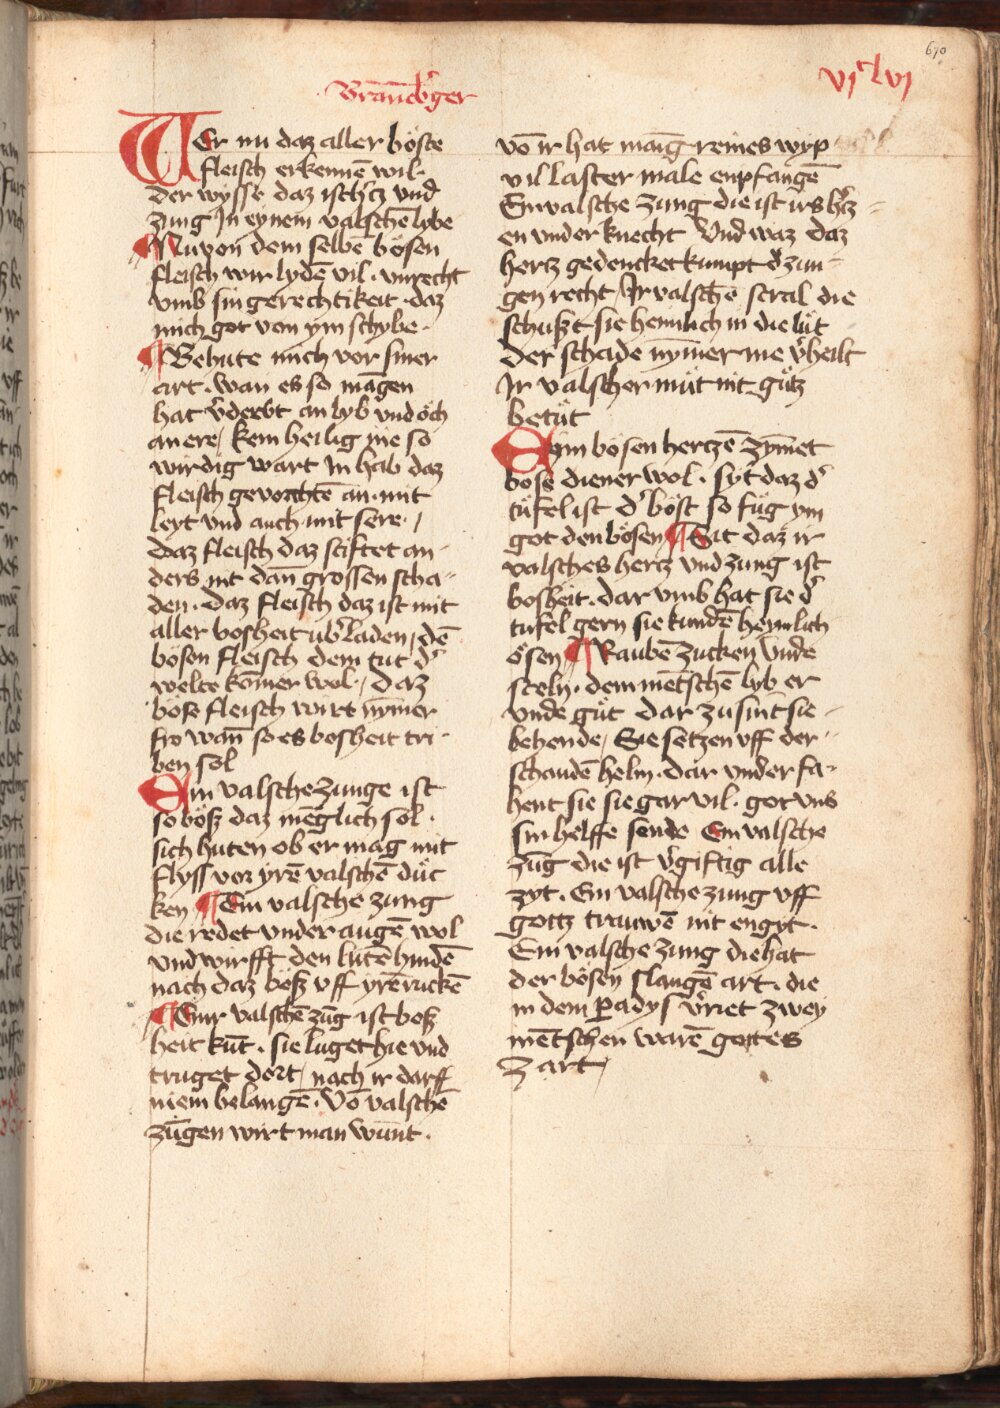 670
vjᶜlvj
Bran̄eb'ger
WEr nu daz aller böste
fleisch erkennē wil·
der wysse daz ist h'cz vnd
zung Jn eynem valschē lybe
Nu von dem selbē bösen
fleisch wir lydē vil· vnrecht
vmb sin gerechtikeit· daz
mich got von ym schybe·
Behute mich vor siner
art· wan es so māgen
hat v'derbt an lyb vnd öch
an ere/ kein heilig nie so
wirdig wart Jn hab daz
fleisch gevochtē an· mit
leyt vnd auch mit sere·/
daz fleisch daz stiftet an-
ders nit dan̄ grossen scha-
den· daz fleisch daz ist mit
aller bosheit ub'laden/ dē
bösen fleisch dem tut d'
welte kōmer wol·/ daz
böse fleisch wirt nȳmer
fro wan̄ so es bosheit tri-
ben sol
Ein valsche zunge ist
so böß daz mēglich sol·
sich huten ob er mag mit
flyss vor yrē valschē duc
ken Ein valsche zung
die redet vnder augē wol
vnd wirfft den lutē hindē
nach daz böß vff yrē ruckē
Einr valschē zūg ist boß
heit kūt· sie luget hie vnd
truget dort/ nach ir darff
niem belangē· Vō valschē
zūgen wirt man wūnt·
vō ir hat māig reines wyp
vil laster male enpfangē
Ein valsche zung die ist irs h'cz-
en vnder knecht Vnd waz daz
hertz gedencket kumpt d' zun-
gen recht/ Jr valschē stral die
schußt sie heimlich in die lüt
der schade nȳmer me v'heilt
Jr valscher müt nit gütz
betüt
Eym bösen hertzē zȳmet
böse diener wol· syt daz d'
tüfel ist d' böst so füg ym
got den bösen Sit daz ir
valsches hertz vnd zung ist
bosheit· dar vmb hat sie d'
tufel gern sie kundē heymlich
ösen Raubē zucken vnde
steln· dem mētschē lyb er
vnde güt dar zu sint sie
behende/ Sie setzen vff der
schandē helm· dar vnder fa-
hent sie sie gar vil· got vns
sin helffe sende Ein valsche
zūg die ist v'giftig alle
zyt· Ein valsche zung vff
gottz trauwē nit engyt·
Ein valsche zung die hat
der bösen slangē art· die
in dem padys v'riet zwey
mētschen warē gottes
zart/